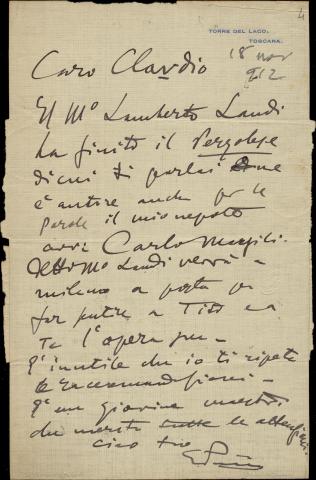 4
TORRE DEL LAGO,
TOSCANA.
18 nov
912
Caro Clausdio
Il Mº Lamberto Landi
ha finito il Pergolese
di cui ti parlai
è autore anche per le
parole il mio nepote
avv Carlo Marsili.
detto Mº Landi verrà a
milano a posta per
far sentire a Tito e a
Te l'opera
E' inutile che io ti ripeta
le raccomandazioni -
E' un giovine maestro
che merita tutte le attenzioni.
ciao tuo